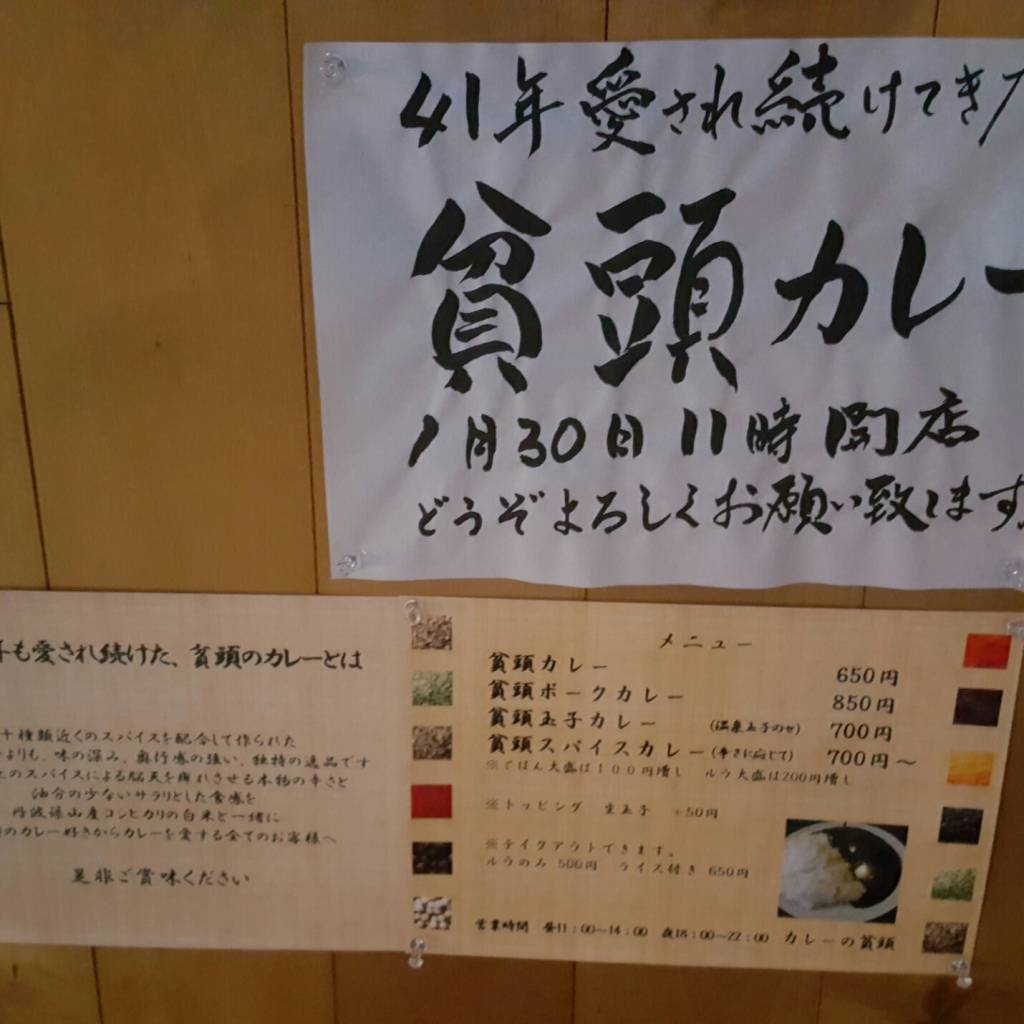 41年愛され続けてきた
貧頭カレー
1月30日11時開店
どうぞよろしくお願い致します。
も愛され続けた、貧頭のカレーとは
十種類近くのスパイスを配合して作られた
よりも、味の深み、奥行感の強い、独特の逸品です
のスパイスによる脳天を痺れさせる本物の辛さと
油分の少ないサラリとした食感を
丹波篠山産コシヒカリの白米と一緒に
のカレー好きからカレーを愛する全てのお客様へ
是非ご賞味ください
メニュー
貧頭カレー 650円
貧頭ポークカレー 850円
貧頭玉子カレー (温泉玉子のせ) 700円
貧頭スパイスカレー (辛さに応じて) 700円～
※ごはん大盛は100円増し ルウ大盛は200円増し
※トッピング 生玉子 +50円
※テイクアウトできます。
ルウのみ 500円 ライス付き 650円
営業時間 昼11：00～14：00 夜18：00～22：00 カレーの貧頭